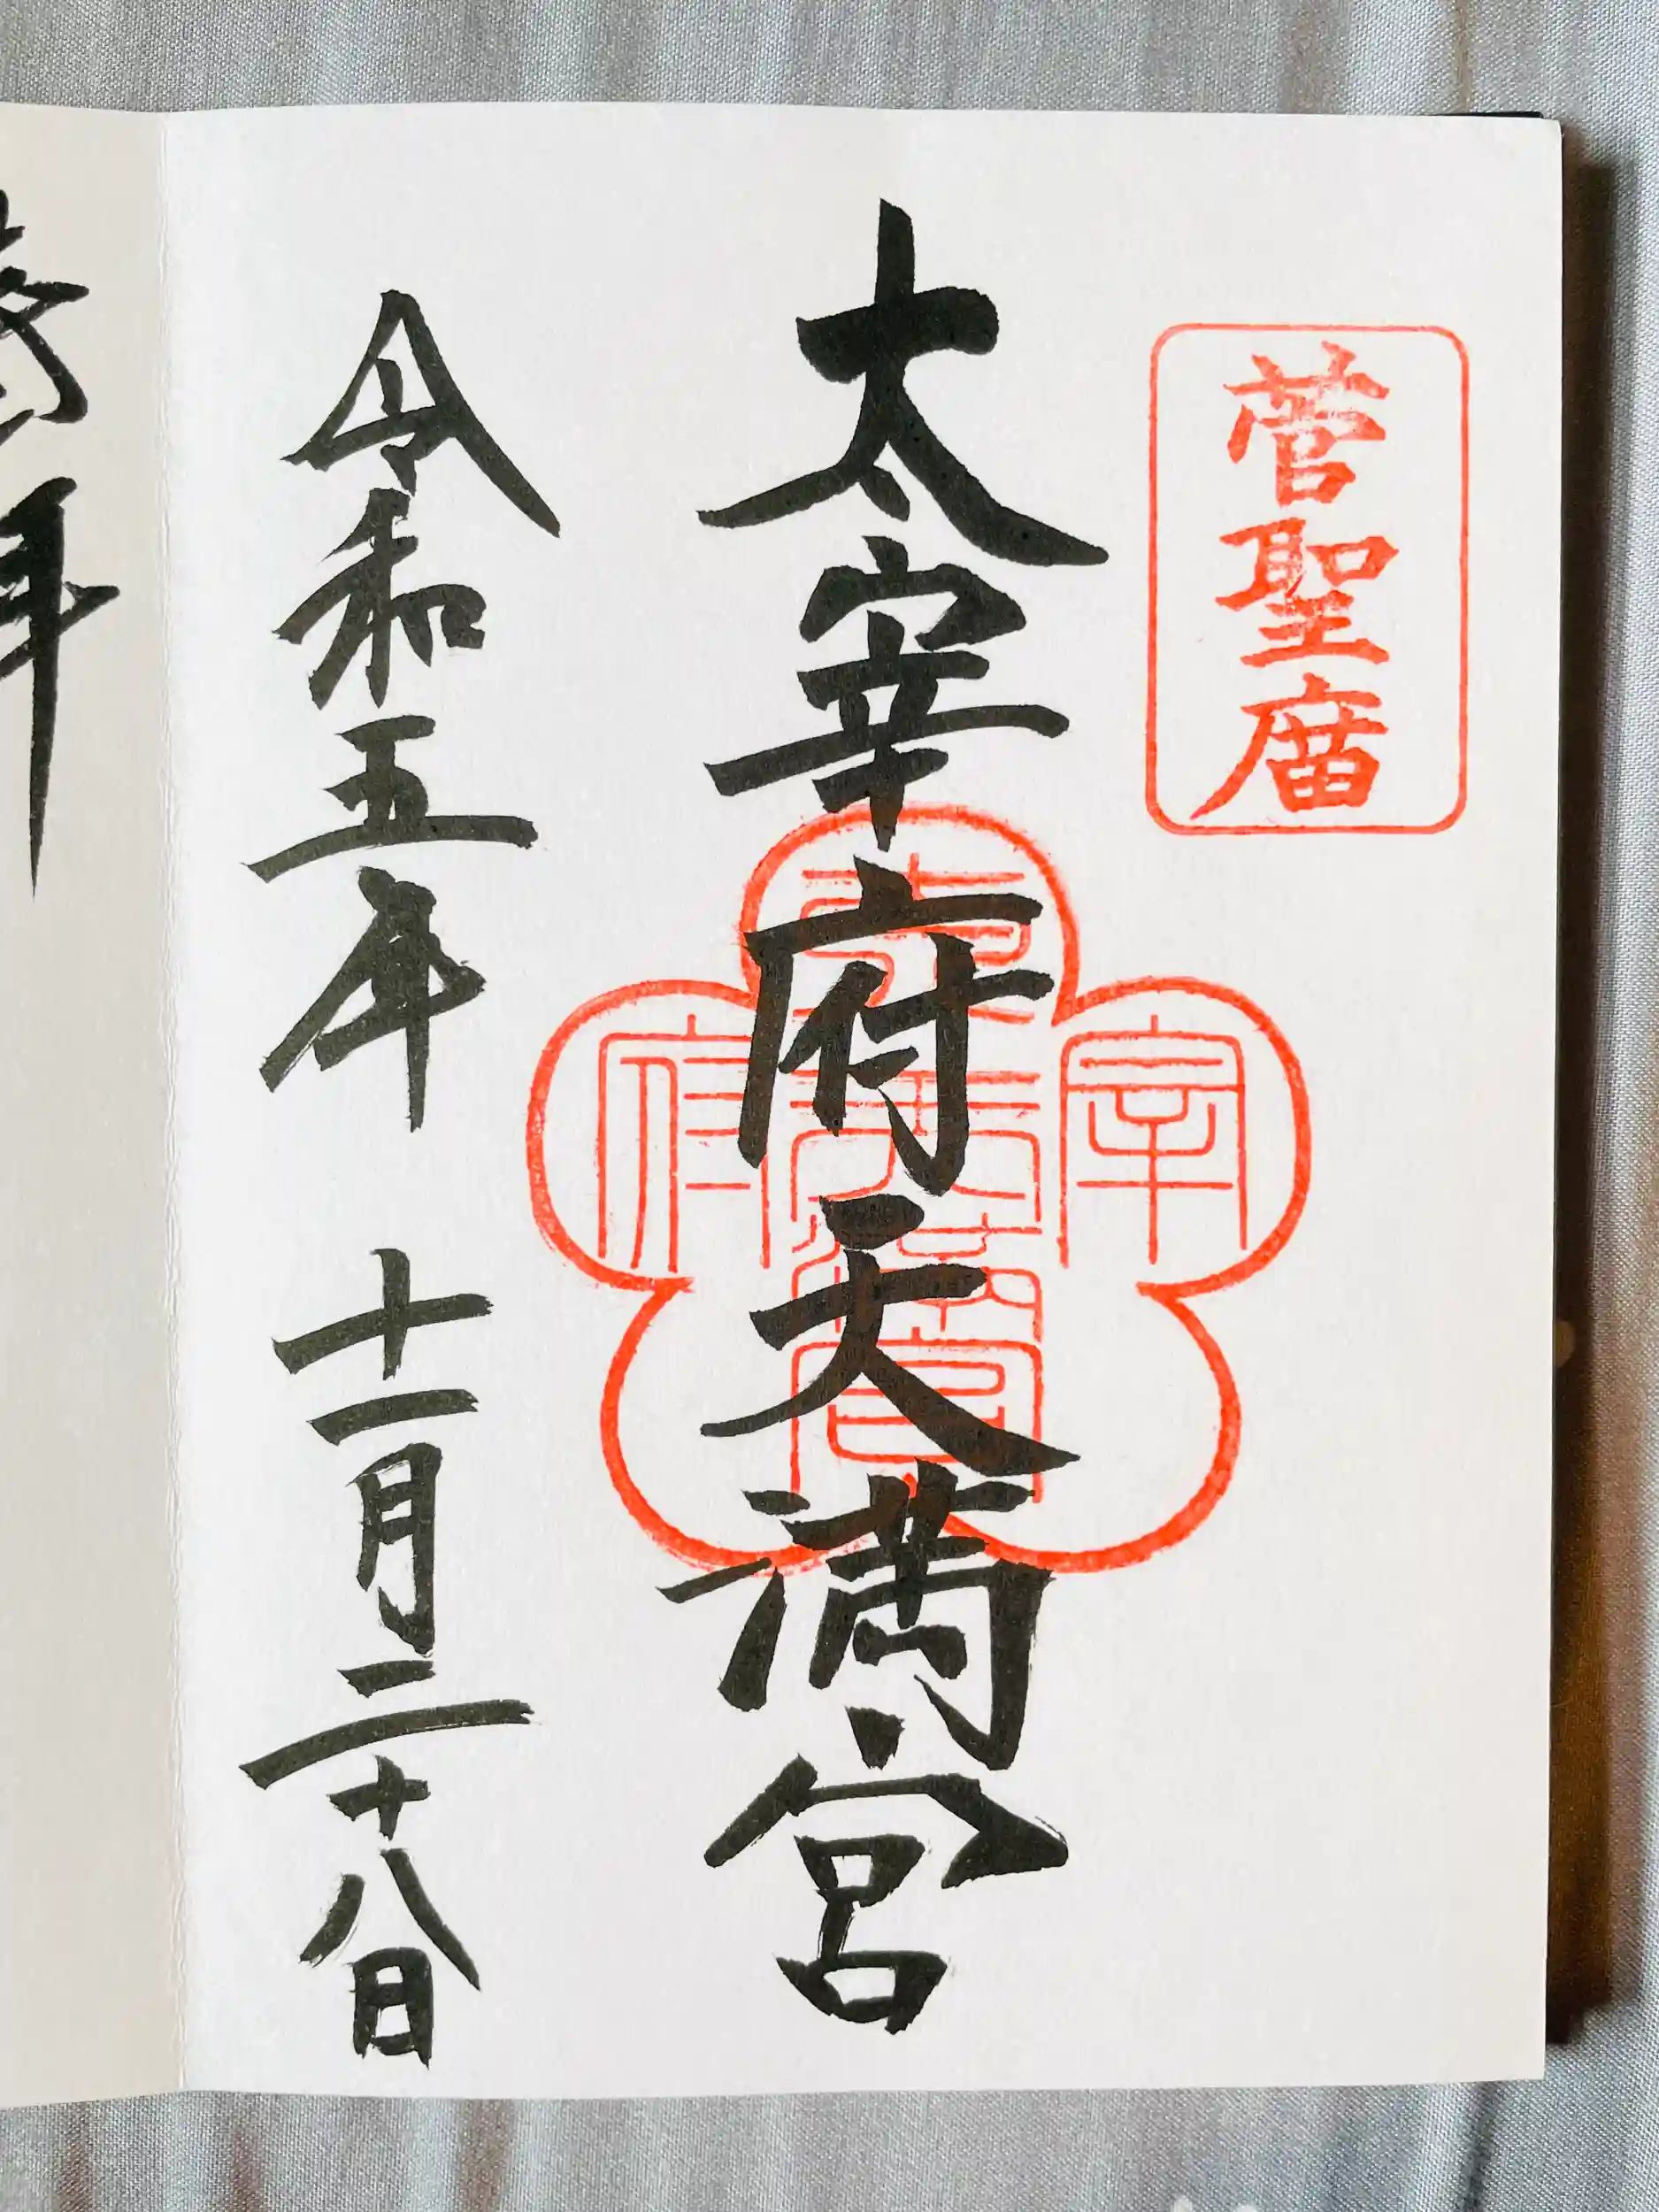 菅聖庿
太宰府天満宮
令和五年 十一月二十八日